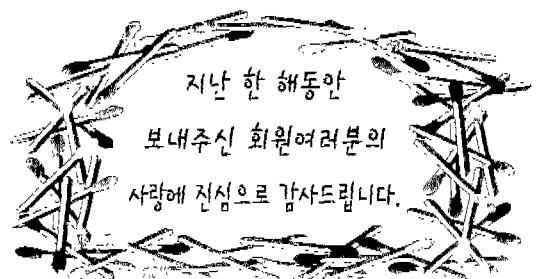 지난 한 해동안
보내주신 회원여러분의
사랑에 진심으로 감사드립니다.